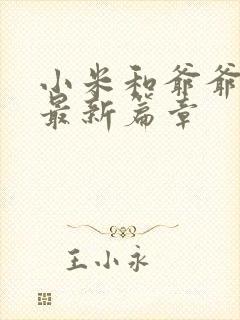 小米和爷爷
最新篇章
王小永